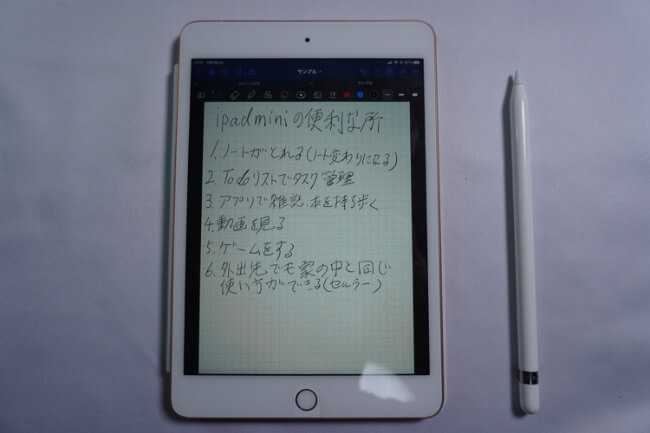 サンプル
サンプル
ipad miniの便利な所
1. ノートがとれる(ノート変わりになる)
2. Todoリストでタスク管理
3. アプリで雑誌、本を持ち歩く
4. 動画を見る
5. ゲームをする
6. 外出先でも家の中と同じ
使い方ができる(セルラー)